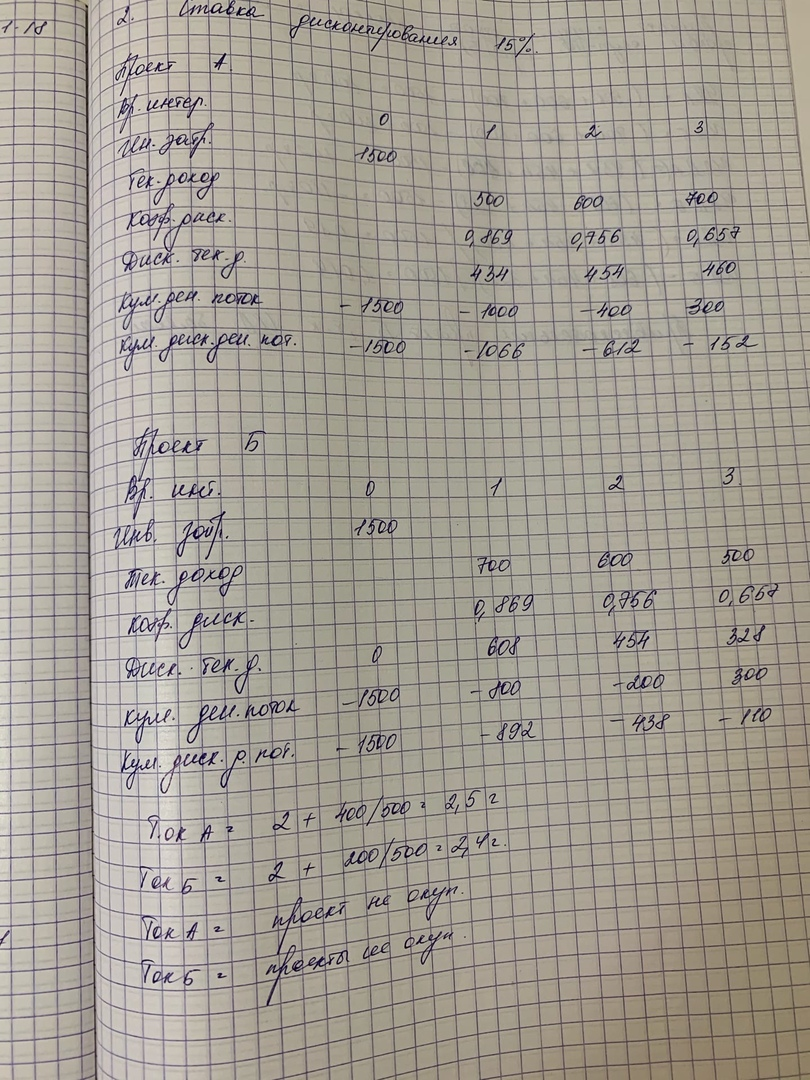 1-18
2. Ставка дисконтирования 15%.
Проект А
Вр. интер. 0 1 2 3
Ин. затр. 1500
Тек. доход 500 600 700
Коэф. диск. 0,869 0,756 0,657
Диск. тек. д. 434 454 460
Кум. ден. поток -1500 -1000 -400 300
Кум. диск. ден. пот. -1500 -1066 -612 -152
Проект Б
Вр. инт. 0 1 2 3
Инв. затр. 1500
Тек. доход 700 600 500
Коэф. диск. 0,869 0,756 0,657
Диск. тек. д. 0 608 454 328
Кум. ден. поток -1500 -800 -200 300
Кум. диск. д. пот. -1500 -892 -438 -110
Ток А = 2 + 400/500 = 2,5 г
Ток Б = 2 + 200/500 = 2,4 г.
Ток А = проект не окуп.
Ток Б = проекты не окуп.